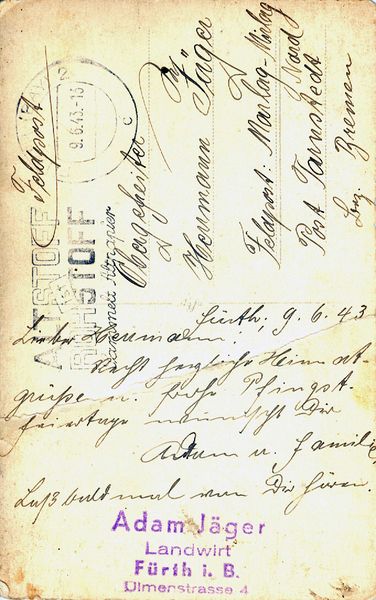 Feldpost
9.6.43.-13
c
ALTSTOFF
ROHSTOFF
sammelt Altpapier
Obergefreiter
Hermann Jäger
Feldpost: Marlag-Marlag
Nord
Post Tarnstedt
Bez. Bremen
Fürth, 9. 6. 43.
Lieber Hermann!
Recht herzliche Heimat-
grüße u. frohe Pfingst-
feiertage wünscht Dir
Adam u. Familie
Laß bald mal von Dir hören.
Adam Jäger
Landwirt
Fürth i. B.
Ulmenstrasse 4